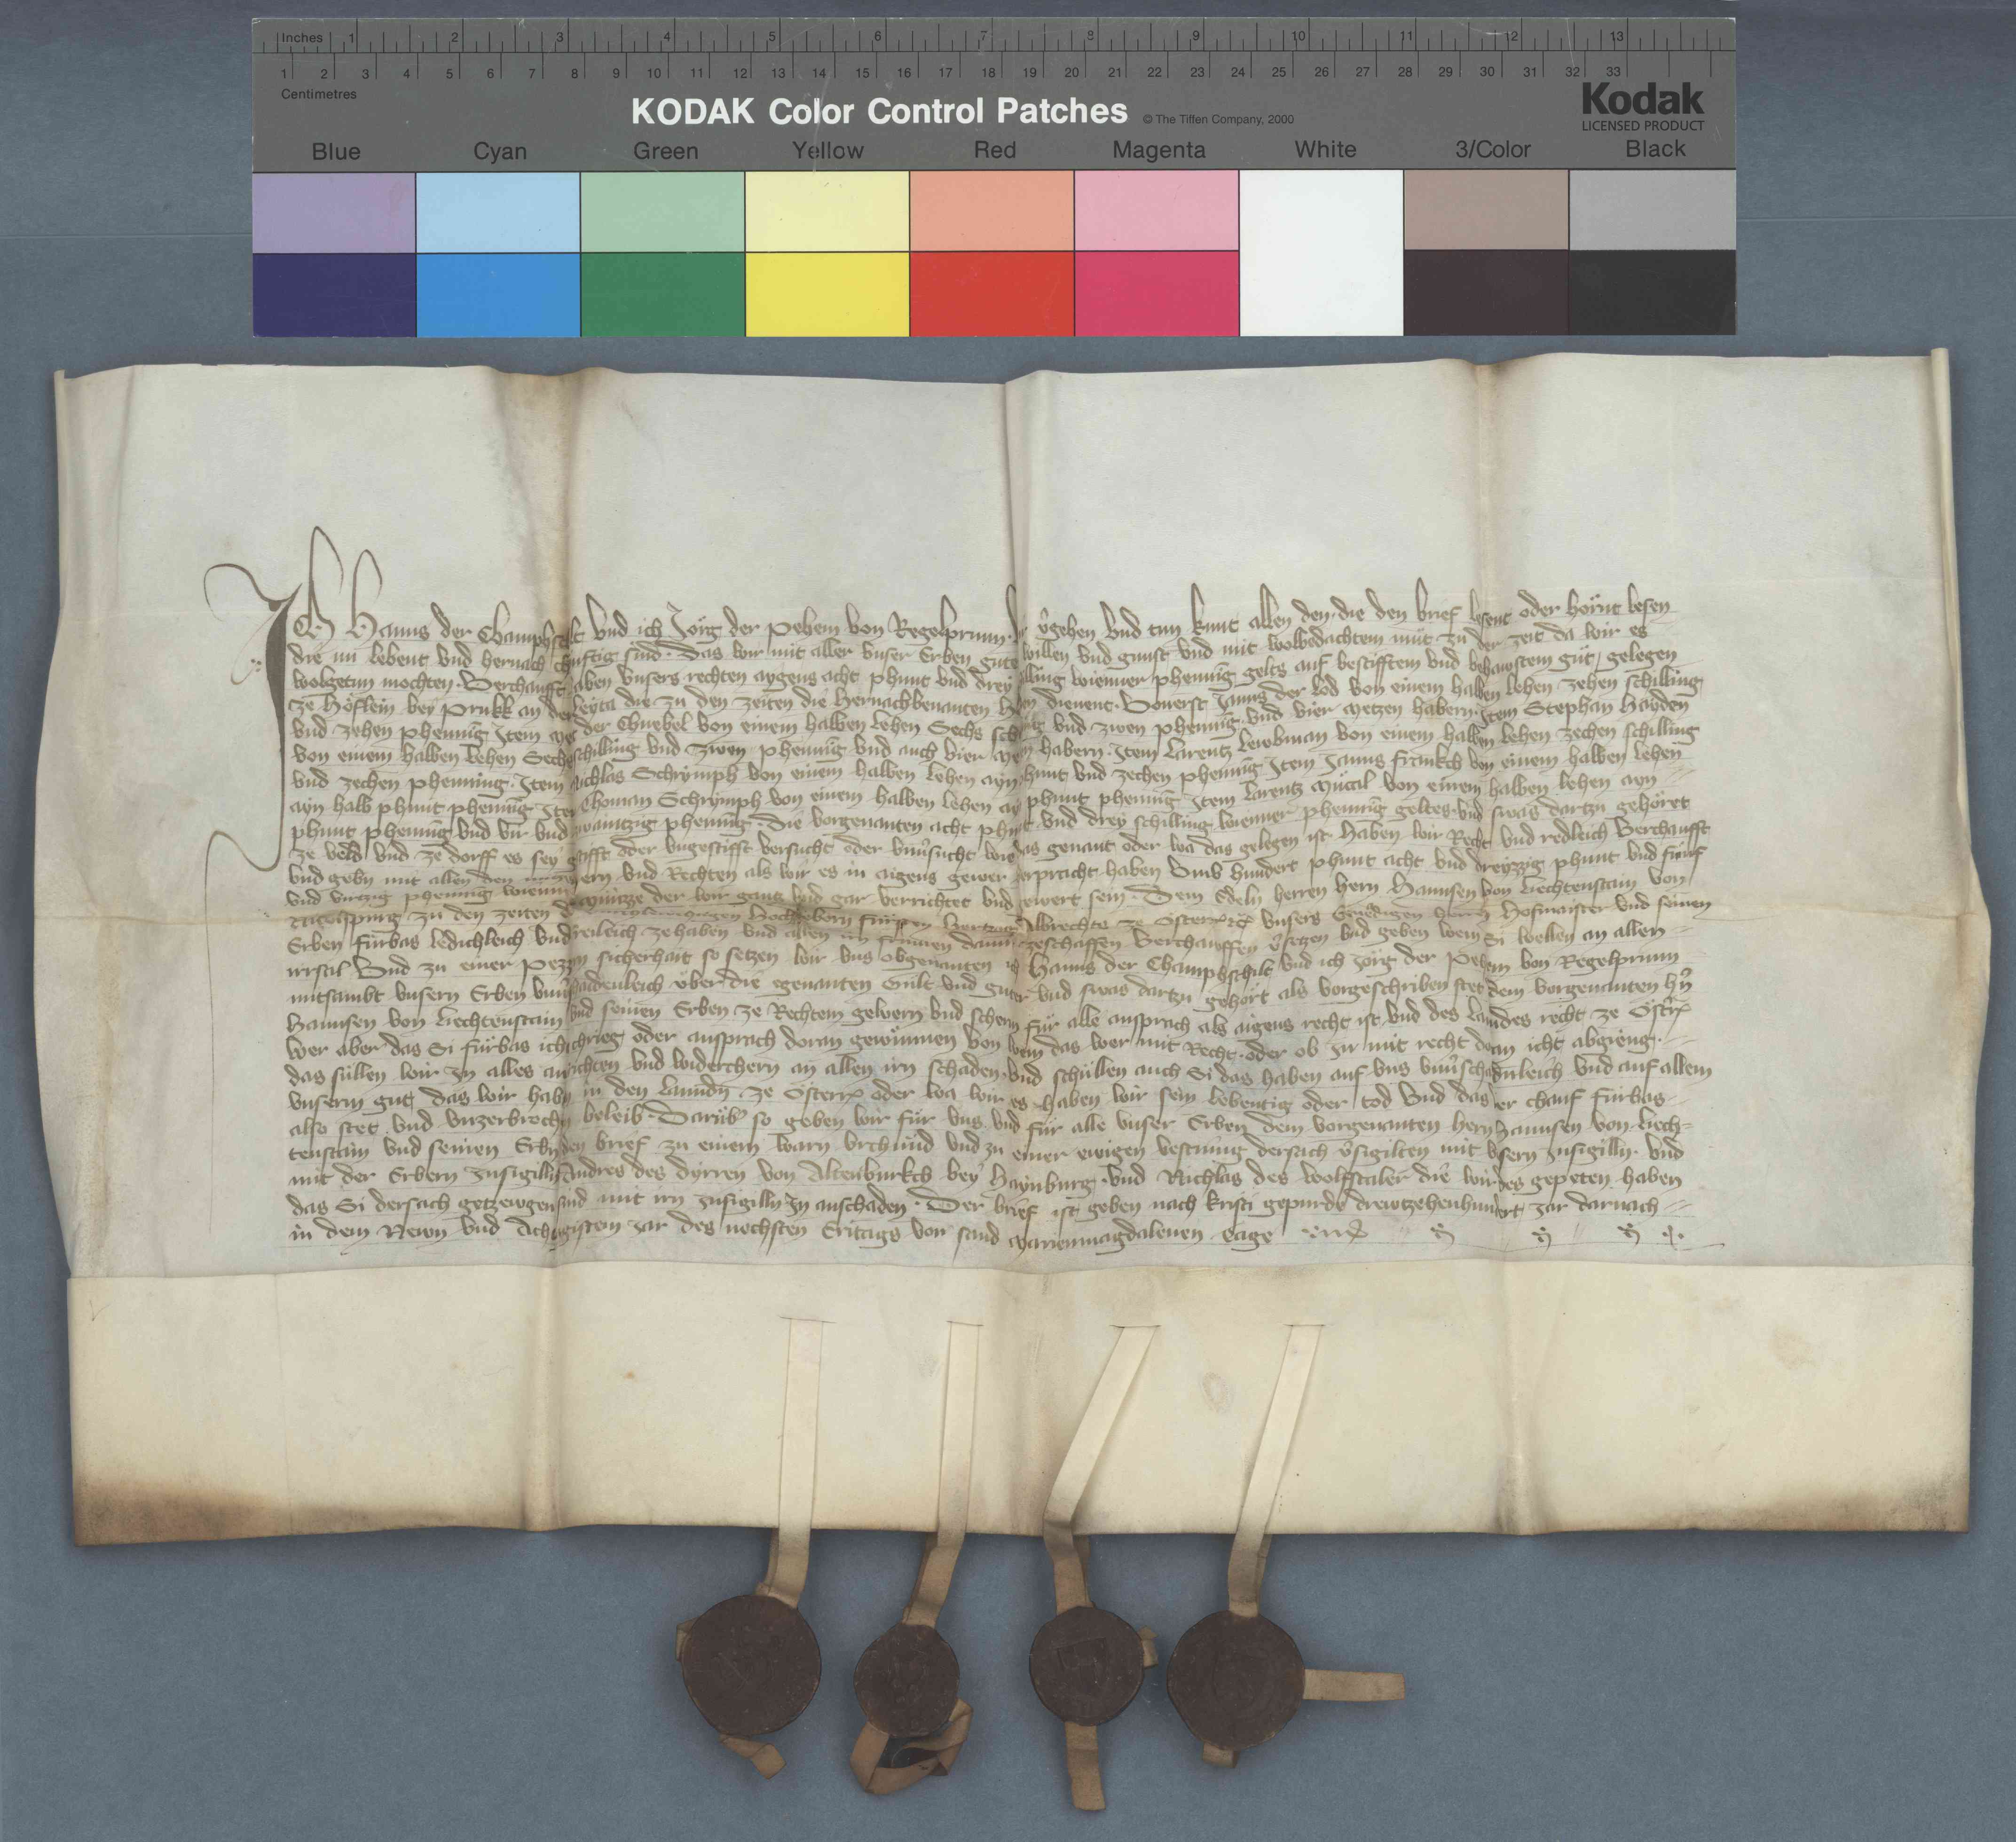 Inches 1 2 3 4 5 6 7 8 9 10 11 12 13
1 2 3 4 5 6 7 8 9 10 11 12 13 14 15 16 17 18 19 20 21 22 23 24 25 26 27 28 29 30 31 32 33
Centimetres
KODAK Color Control Patches © The Tiffen Company, 2000 Kodak
LICENSED PRODUCT
Blue Cyan Green Yellow Red Magenta White 3/Color Black
Ich Hanns der Champhschilt vnd ich Jörg der Pehem von Regelprunn vergehen vnd tun kunt allen den die den brief lesent oder hörnt lesen
die nu lebent vnd hernach chunftig sind. Das wir mit aller vnser Erben gute willen vnd gunst vnd mit wolbedachtem mut zu der zeit da wir es
wolgetun mochten. Verchaufft haben vnsers rechten aygens acht phunt vnd drey schilling wienner phennig gelts auf bestifftem vnd behawstem gut, gelegen
ze Höflein bey Prukk an der Leyta die zu den zeiten die hernachbenanten dienent. Vonerst Janns der Lod von einem halben lehen zehen schilling
vnd zehen phennig Item der Chnebel von einem halben lehen Sechs schilling vnd zwen phennig vnd vier metzen habern. Item Stephan Hayden
von einem halben lehen Sechs schilling vnd zwen phennig vnd auch vier metzen habern. Item Larentz Lewbman von einem halben lehen zechen schilling
vnd zechen phenning. Item Nichlas Schrymph von einem halben lehen ayn phunt vnd zechen phennig Item Janns frankch von einem halben lehen
ayn halb phunt phennig Item Choman Schrymph von einem halben lehen ayn phunt phennig Item Larentz von einem halben lehen ayn
phunt phennig vnd vir vnd zwaintzig phennig. Die vorgenanten acht phunt vnd drey schilling wienner phennig geltes vnd swas dartzu gehöret
ze veld vnd ze dorff es sey gestifft oder vngestifft versucht oder vnuersucht wie das genant oder wa das gelegen ist. Haben wir Recht vnd redleich Verchaufft
vnd gebn mit allen den nutzen eren vnd Rechten als wir es in aigens gewer herpracht haben Vmb hundert phunt acht vnd dreyzzig phunt vnd fünf
vnd virtzig phennig wienner münzze der wir gantz vnd gar verrichtet vnd gewert sein. Dem Edeln herren hern Hannsen von Liechtenstain von
Nicolspurg zu den zeiten des Hochgeborn fürsten Hertzog Albrechts ze Österrich vnsers Genedigen herren Hofmaister vnd seinen
Erben fürbas ledichleich vnd freileich zehaben vnd allen irn frumen damit zeschaffen Verchauffen versetzen vnd geben wem Si wellen an allen
irrsal Vnd zu einer pezzern sicherhait so setzen wir vns obgenanten ich Hanns der Champhschilt vnd ich Jörg der Pehem von Regelprunn
mitsambt vnsern Erben vnuerschaidenleich über die egenanten Gült vnd guter vnd swas dartzu gehört als vorgeschriben stet dem vorgenanten hern
Hannsen von Liechtenstain vnd seinen Erben ze Rechtem gewern vnd scherm für alle ansprach als aigens recht ist vnd des Landes recht ze Österrich
Wer aber das Si fürbas icht chrieg oder ansprach doran gewünnen von wem das wer mit Recht. oder ob In mit recht doran icht abgieng.
das süllen wir In alles ausrichten vnd widerchern an allen irn schaden. vnd schüllen auch Si das haben auf vns vnuerschaidenleich vnd auf allem
vnserm gut das wir haben in den Lannden ze Österrich oder wa wir es haben wir sein lebentig oder tod Vnd das der chauf fürbas
also stet vnd vnzerbrochen beleib. Darüber so geben wir für vns vnd für alle vnser Erben dem vorgenanten hern Hannsen von Liech-
tenstain vnd seinen Erben den brief zu einem warn vrchund vnd zu einer ewigen vestnung dersach versigilten mit vnsern Insigilln. vnd
mit der Erbern Insigilln Andres des dyrren von Altenburkch bey Haynburg. vnd Nichlas des Wolfstaler die wir des gepeten haben
das Si dersach getzewgen sind mit irn Insigilln In anschaden. Der brief ist geben nach kristi gepurde drewtzehenhundert Jar darnach
in dem Newn vnd Achtzgistem Jar des nechsten Eritags vor sand Marienmagdalenen tage